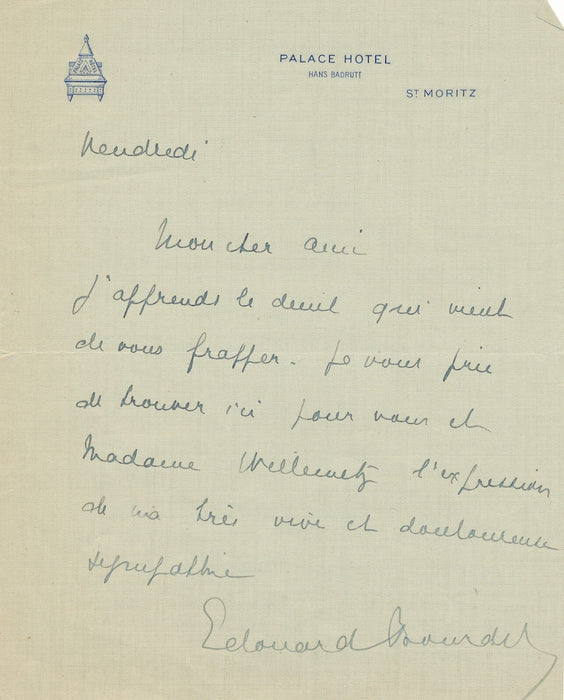 PALACE HOTEL
PALACE HOTEL
HANS BADRUTT
ST MORITZ
Vendredi
Mon cher ami
J'apprends le deuil qui vient
de vous frapper. Je vous prie
de trouver ici pour vous et
Madame Willemetz l'expression
de ma très vive et douloureuse
sympathie
Edouard Bourdet